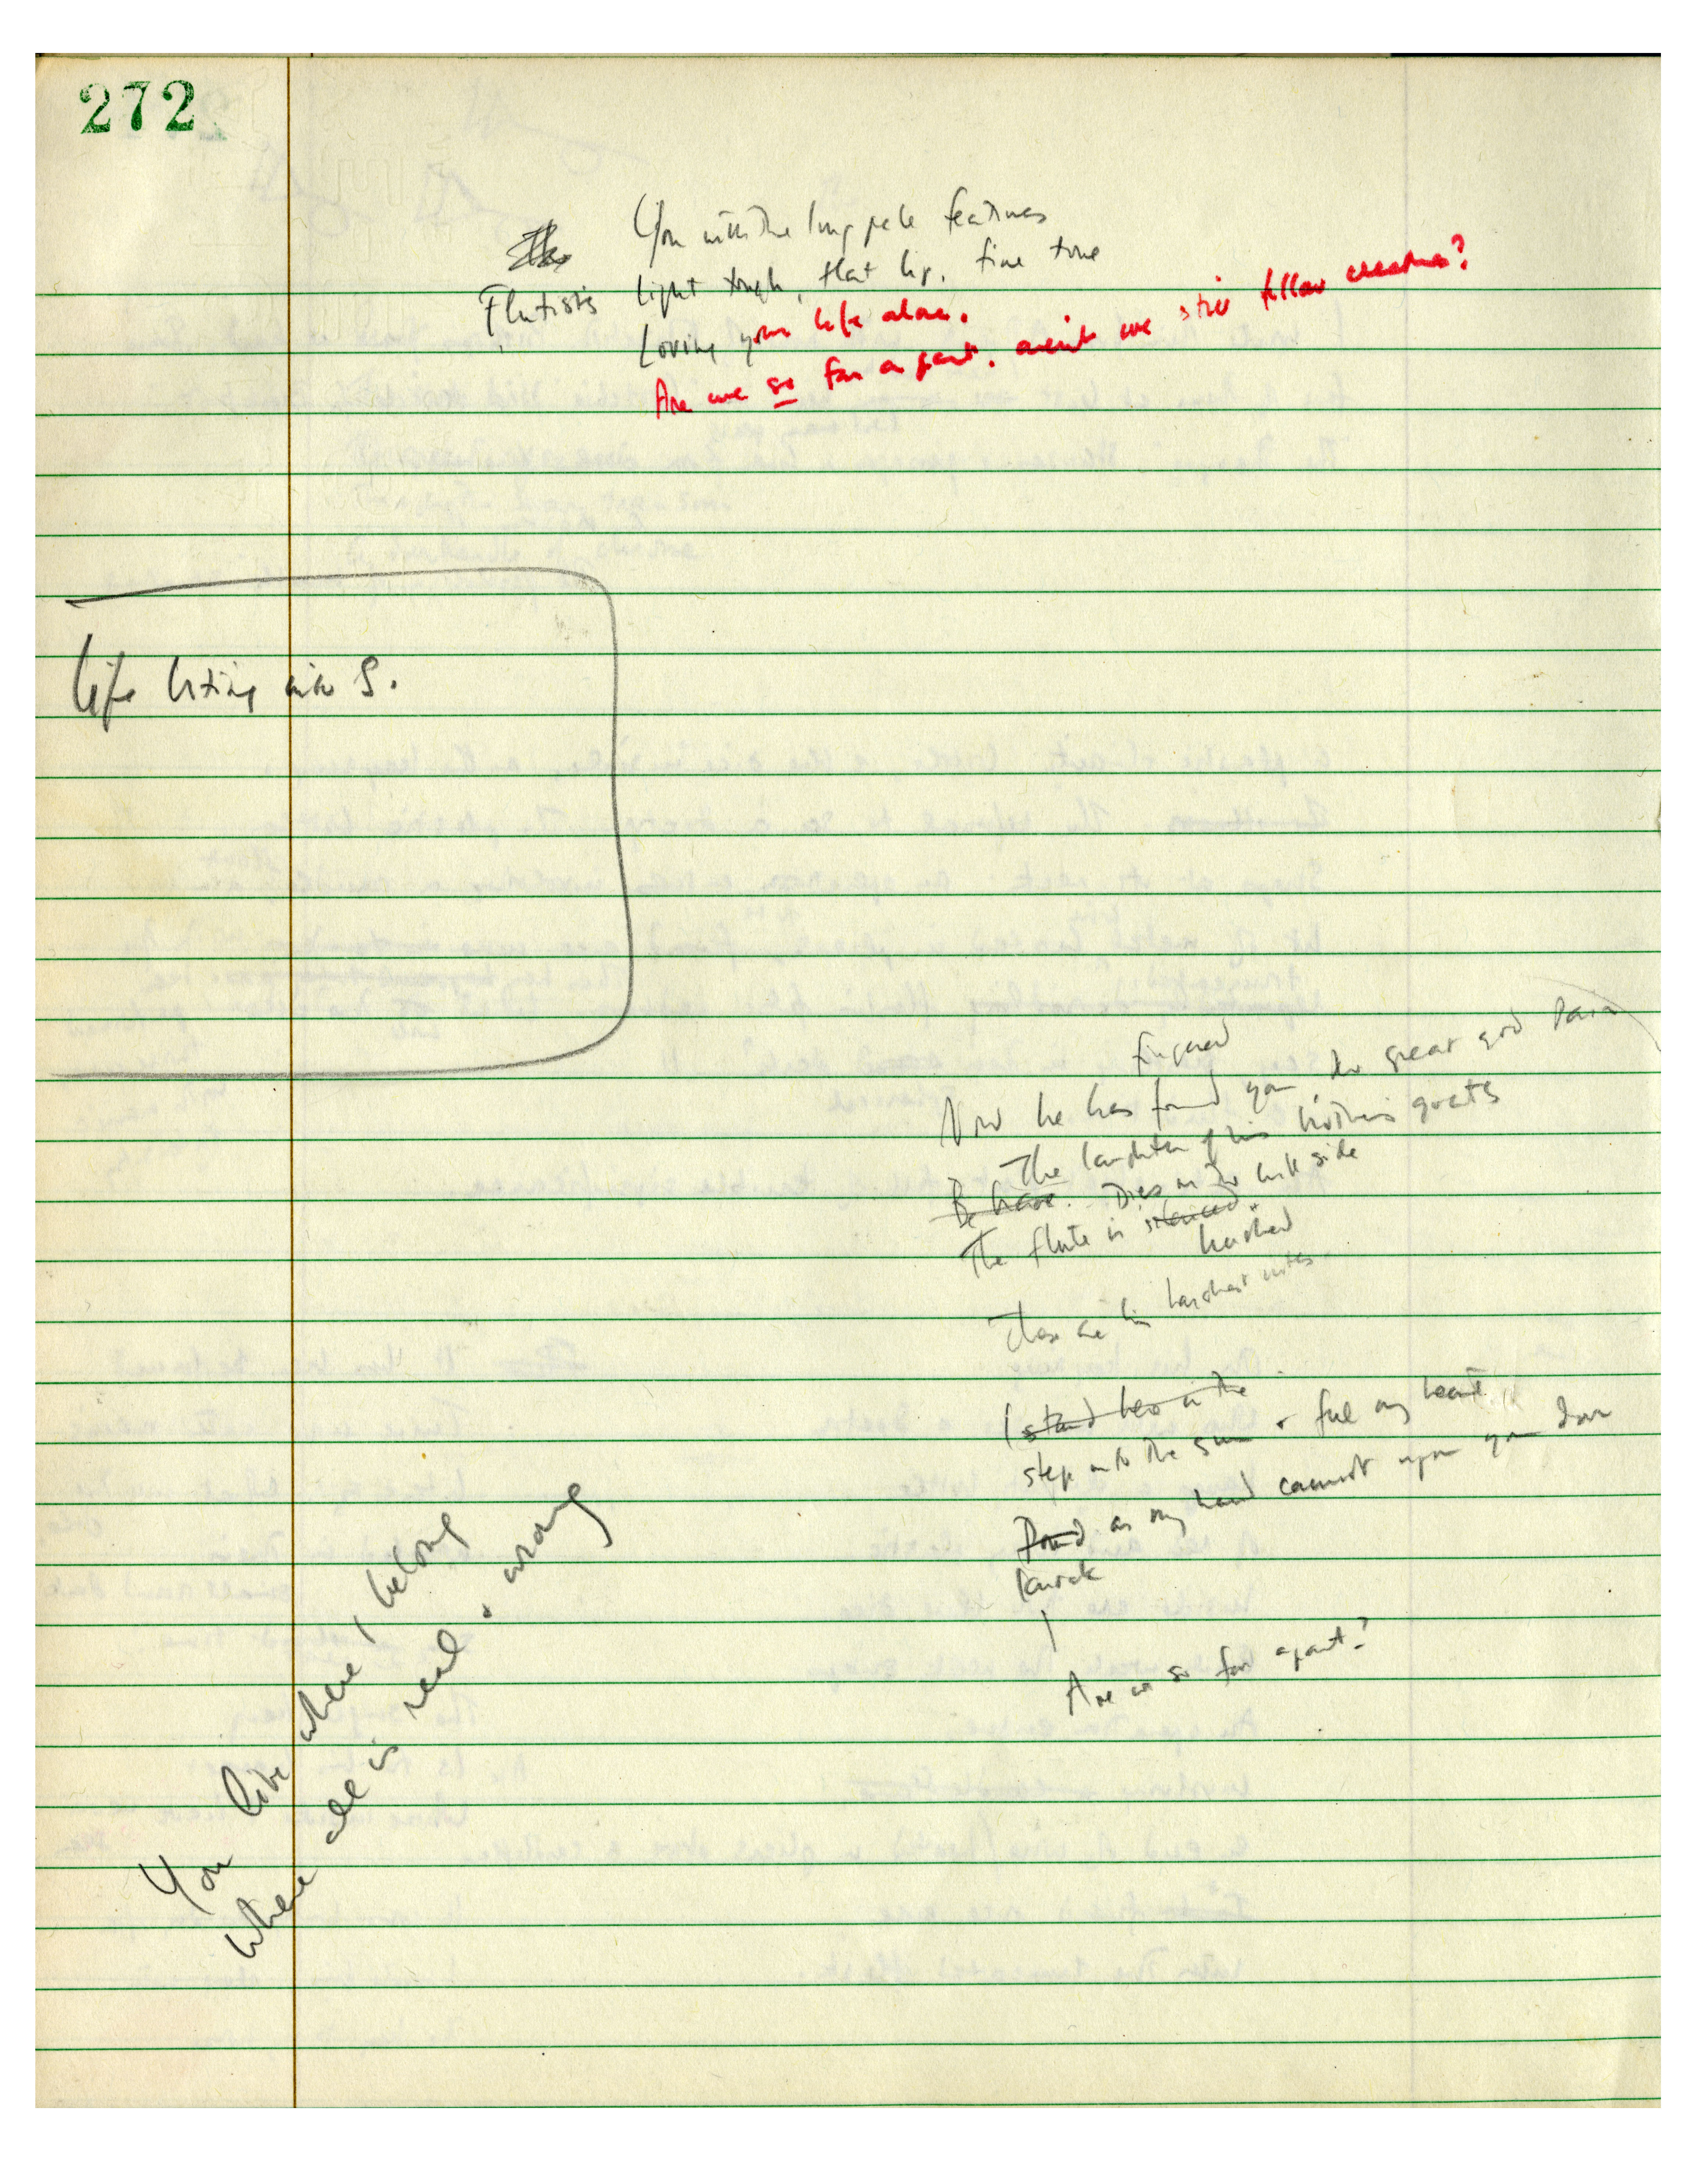 272
You with the long pale features
Flutist's light touch, that lip, fine tone
Loving your life alone.
Are we so far apart, aren't we still fellow creatures?
Life biting into S.
Fingered
Now he has found you, the great god Pain
The laughter of his brother's goats
Be brave. Dies on the hill side
The flute is silenced.
hushed
These are his harshest notes
I stand here in the
step into the sun & feel my heart
Pound as my hand cannot upon your door
knock
Are we so far apart?
You live where I belong
Where all is real & wrong